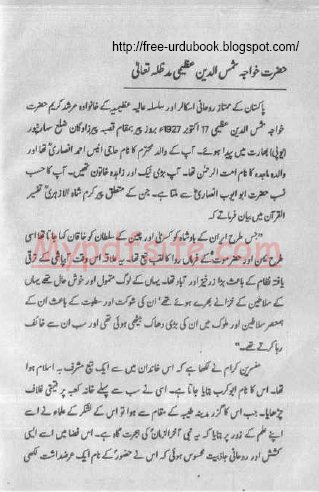 http://free-urdubook.blogspot.com/
حضرت خواجہ شمس الدین عظیمی مدظلہ تعالیٰ
پاکستان کے ممتاز روحانی اسکالر اور سلسلہ عالیہ عظیمیہ کے خانوادہ مرشد کریم حضرت
خواجہ شمس الدین عظیمی 17 اکتوبر 1927ء بروز پیر بمقام قصبہ پیرزادگان ضلع سہارنپور
(یوپی) بھارت میں پیدا ہوئے۔ آپ کے والد محترم کا نام حاجی انیس احمد انصاری تھا اور
والدہ ماجدہ کا نام امت الرحمٰن تھا۔ آپ بڑی نیک اور زاہدہ خاتون تھیں۔ آپ کا حسب
نسب حضرت ابو ایوب انصاری سے ملتا ہے۔ جن کے متعلق پیر کرم شاہ الازہری تفسیر
القرآن میں بیان فرماتے کہ
"جس طرح ایران کے بادشاہ کو کسریٰ اور چین کے سلطان کو خاقان کہا جاتا تھا اسی
طرح یمن اور حضر موت کے فرماں روا کا لقب تبع تھا۔ یہ علاقہ اس وقت آبپاشی کے ترقی
یافتہ نظام کے باعث بڑا زرخیز اور آباد تھا۔ یہاں کے لوگ متمول اور خوش حال تھے یہاں
کے سلاطین کے خزانے بھرے ہوئے تھے' ان کی شوکت اور سطوت کے باعث ان کے
ہمعصر سلاطین اور ملوک میں ان کی بڑی دھاک بیٹھی ہوئی تھی اور سب ان سے خائف
رہا کرتے تھے۔"
مفسرین کرام نے لکھا ہے کہ اس خاندان میں سے ایک تبع مشرف بہ اسلام ہوا
تھا۔ اس کا نام ابوکرب بتایا جاتا ہے۔ اسی نے سب سے پہلے خانہ کعبہ پر قیمتی غلاف
چڑھایا۔ جب اس کا گزر مدینہ طیبہ کے مقام سے ہوا تو اس کے لشکر کے علماء نے اسے
اپنے علم کے زور پر بتایا کہ یہ نبی آخر الزماں کی ہجرت گاہ ہے۔ اس فضا میں اسے ایسی
کشش اور روحانی جاذبیت محسوس ہوئی کہ اس نے حضور کے نام ایک عرضداشت لکھی
Mypdfsite.com